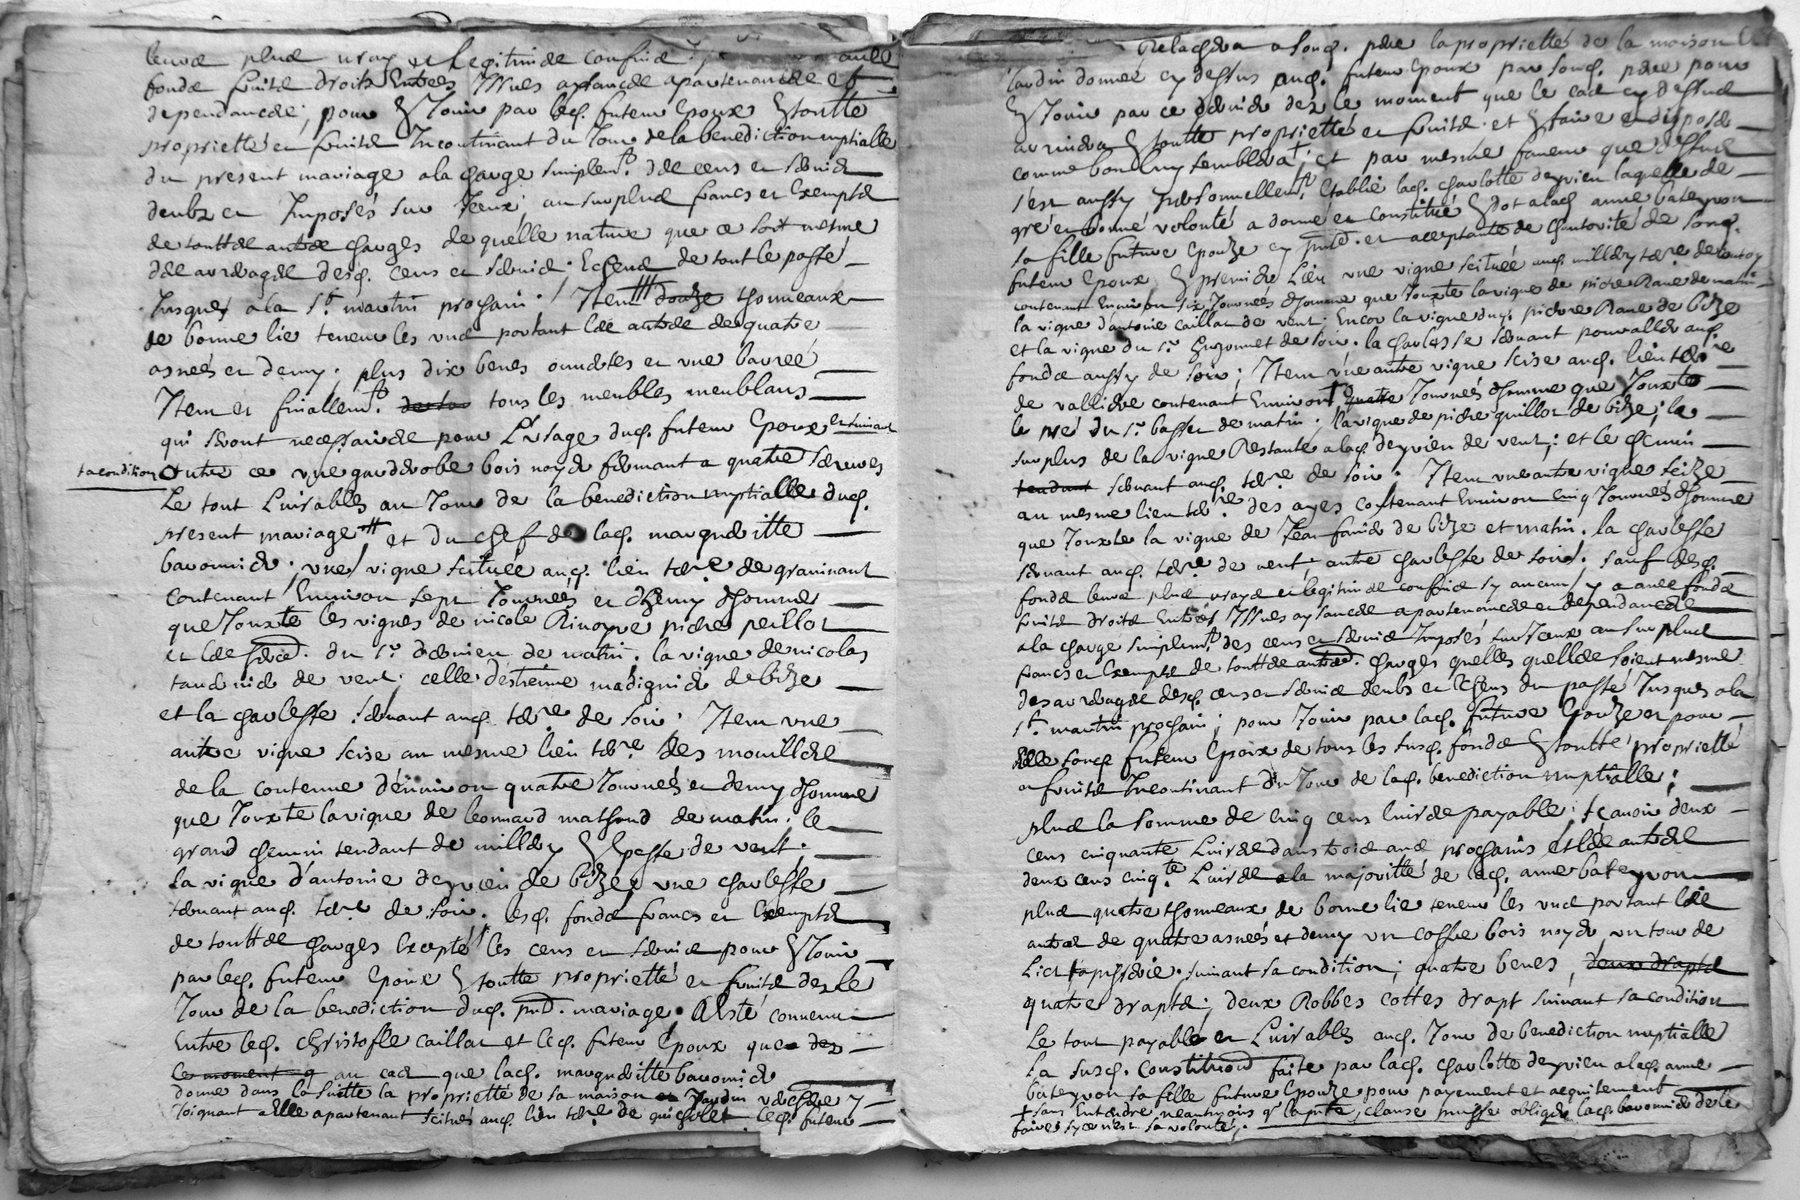 leurs plus vrays et legitimes confins
fonds fruits droits Entrées yssues aysances apartenances et
dependances; pour Jouir par led. futeur Epoux toutte
proprietté et fruits Incontinant du Jour de la benediction nuptialle
du present mariage a la charge simplemt. des cens et servis
deubs et Imposés sur Iceux; au surplus francs et Exempts
de touttes autres charges de quelle nature que ce soit mesme
des arrerages desd. cens et servis Echeus de tout le passé
Jusques a la st. martin prochain; Item douze thonneaux
de bonne lie teneur les uns portant les autres de quatre
asnées et demy; plus dix benes ouvertes et une barree,
Item et finallemt. tous les meubles meublans
qui seront necessaires pour L'usage dud. futeur Epoux suivant
sa condition outre ce une garderobe bois noyer fermant a quatre serrures
Le tout Livrables au Jour de la benediction nuptialle dud.
present mariage et du chef de lad. margueritte
bavomier; une vigne scituée aud. lieu terre. de graninant
contenant Environ sept Journées et demy d'homme
que Jouxte les vignes de nicole Rivoyre pierre peillot
et les du sr. de matin. la vigne de nicolas
de vent; celle d'estienne madignier de bize
et la charlesse servant aud. terre. de soir. Item une
autre vigne scise au mesme lieu terre. des mouilles
de la contenue d'environ quatre Journées et demy d'homme
que Jouxte la vigne de leonnard mathoud de matin; le
grand chemin tendant de milly de vent.
La vigne d'antoine deyvieu de bize; une charlesse
servant aud. terre. de soir. lesd. fonds francs et Exempts
de touttes charges Excepté les cens et servis pour Jouir
par led. futeur Epoux toutte proprietté et fruits dez le
Jour de la benediction dud. pnt. mariage. A esté convenu
Entre led. christofle caillat et led. futeur Epoux que dez
ce moment au cas que lad. margueritte bavomier
donne dans la suitte la proprietté de sa maison et Jardin
Joignant a Elle apartenant scitués aud. lieu terre. de led. futeur
relachera a sond. pere la proprietté de la maison
Jardin donnés cy dessus aud. futeur Epoux par sond. pere pour
Jouir par ce dernier dez le moment que le cas cy dessus
arrivera toutte proprietté et fruits et faire et disposer
comme bon luy semblera; et par mesme faveur que dessus
s'est aussy personnellemt. Establie lad. charlotte deyvieu laquelle de
gré et bonne volonté a donné et constitué dot a lad. anne bateyron
sa fille future Epouze cy pnte. et acceptante de l'hautorité de sond.
futeur Epoux, premier Lieu une vigne scituée aud. milly terre. de
contenant Environ six Journées d'homme que Jouxte la vigne de pierre Rave de matin
la vigne d'antoine caillat de vent. Encor la vigne dud. pierre Rave de bize
et la vigne du sr. de soir. la charlesse servant pour aller aud.
fonds aussy de soir; Item une autre vigne scise aud. lieu terre.
de vallière contenant Environ quatre Journées d'homme que Jouxte
le pré du sr. basset de matin. la vigne de pierre quillot de bize; le
surplus de la vigne Restante a lad. deyvieu de vent; et le chemin
tendant servant aud. terre. de soir. Item une autre vigne scize
au mesme lieu terre. des ayes contenant Environ cinq Journées d'homme
que Jouxte la vigne de Jean de bize et matin. la charlesse
servant aud. terre. de vent autre charlesse de soir. sauf desd.
fonds leurs plus vrays et legitimes confins sy aucuns y a avec fonds
fruits droits Entrées yssues aysances apartenances et dependances
a la charge simplemt. des cens et servis Imposés sur Iceux au surplus
francs et Exempts de touttes autres charges quelles quelles soient mesme
des arrerages desd. cens et servis deubs et Echeus du passé Jusques a la
st. martin prochain; pour Jouir par lad. future Epouze et pour
Elle sond. futeur Epoux de tous les susd. fonds toutte proprietté
et fruits Incontinant du Jour de lad. benediction nuptialle;
plus la somme de cinq cens livres payable; sçavoir deux
cens cinquante Livres dans trois ans prochains et les autres
deux cens cinqte. Livres a la majoritté de lad. anne bateyron
plus quatre thonneaux de bonne lie teneur les uns portant les
autres de quatre asnées et demy un coffre bois noyer, un tour de
Lict tapisserie suivant sa condition; quatre benes, deux drapts
quatre drapts; deux Robbes cottes drapt suivant sa condition
Le tout payable et Livrables aud. Jour de benediction nuptialle
La susd. constitution faite par lad. charlotte deyvieu a lad. anne
bateyron sa fille future Epouze pour payement et acquitement
+ sans Entendre neantmoins q. la pnte. clause puisse obliger lad. bavomier de le
faire sy ce n'est sa volonté.